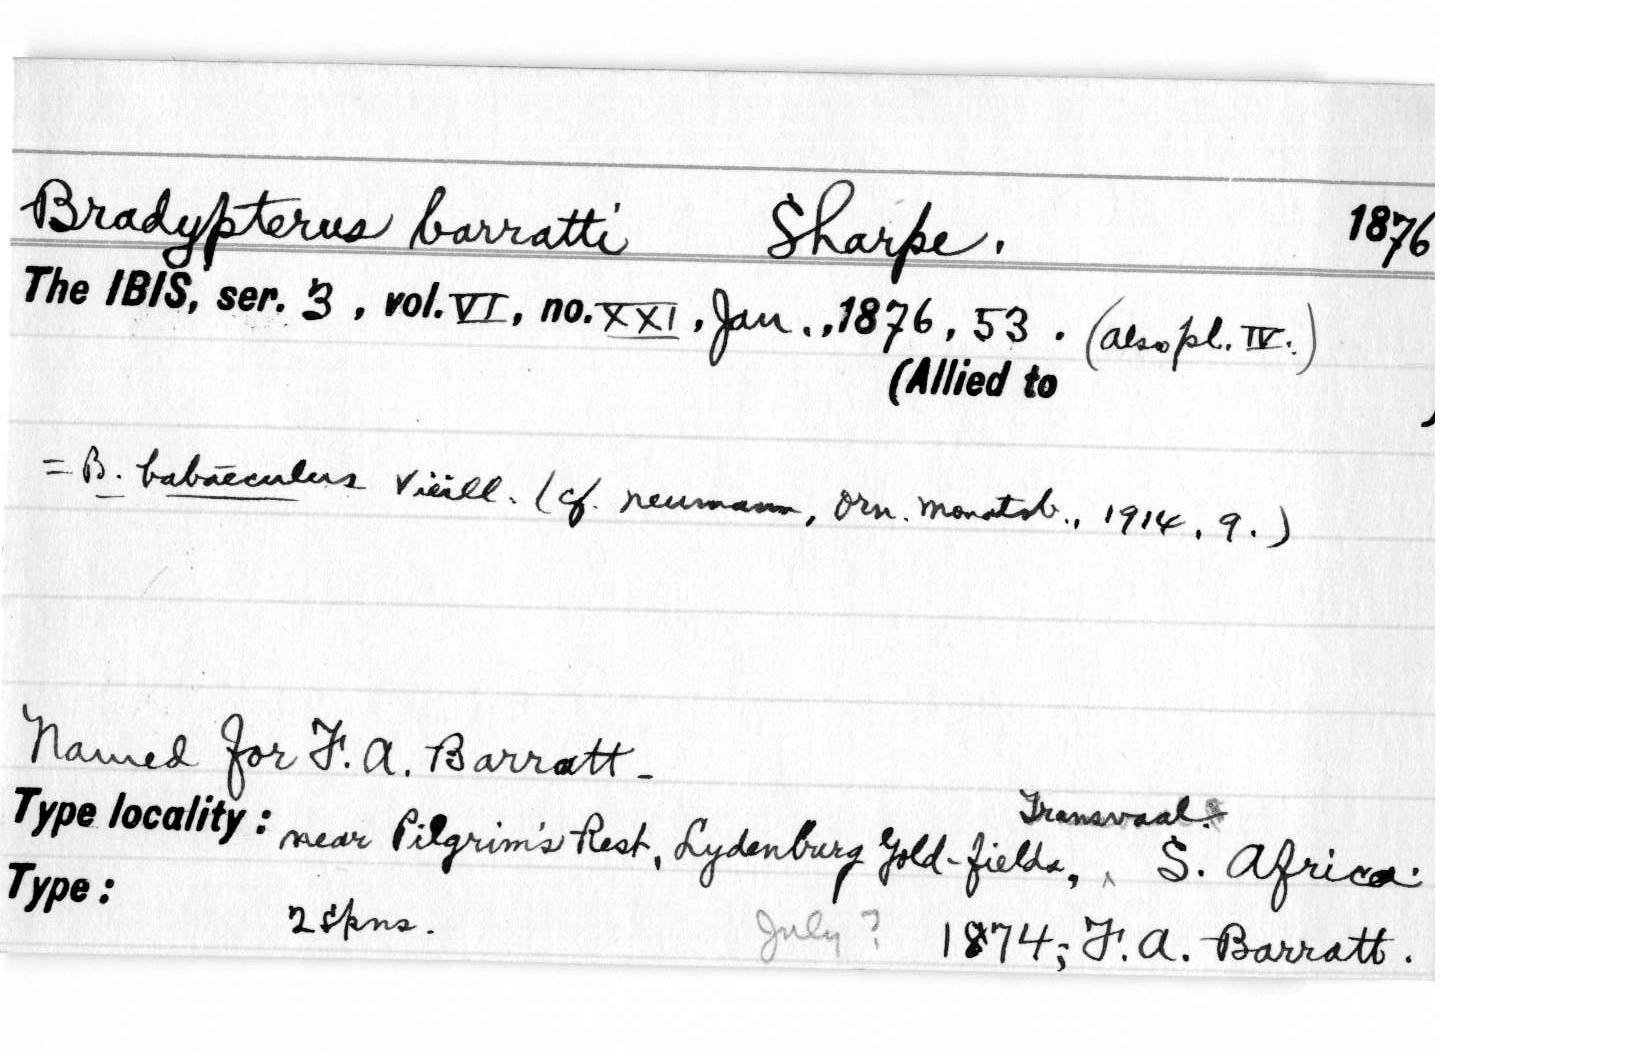 Bradypterus barratti Sharpe. 1876
The IBIS, ser. 3, vol. VI, no. XXI, Jan., 1876, 53. (also pl. IV.)
(Allied to )
= B. babaeculus Vieill. (cf. Neumann, Orn. Monatsb., 1914, 9.)
Named for F. A. Barratt-
Transvaal.
Type locality: near Pilgrim's Rest, Lydenburg Gold-fields, ^ S. Africa.
Type: 2 spns. July? 1874; F. A. Barratt.